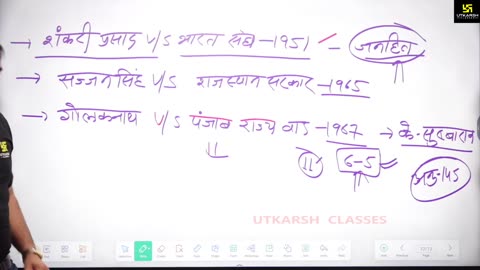 UTKARSH
→ शंकरी प्रसाद V/S भारत संघ - 1951 - जनहित
→ सज्जन सिंह V/S राजस्थान सरकार - 1965
→ गोलकनाथ V/S पंजाब राज्य वाद - 1967 → के. सुब्बाराव
11 6-5 अनु. 145
UTKARSH CLASSES